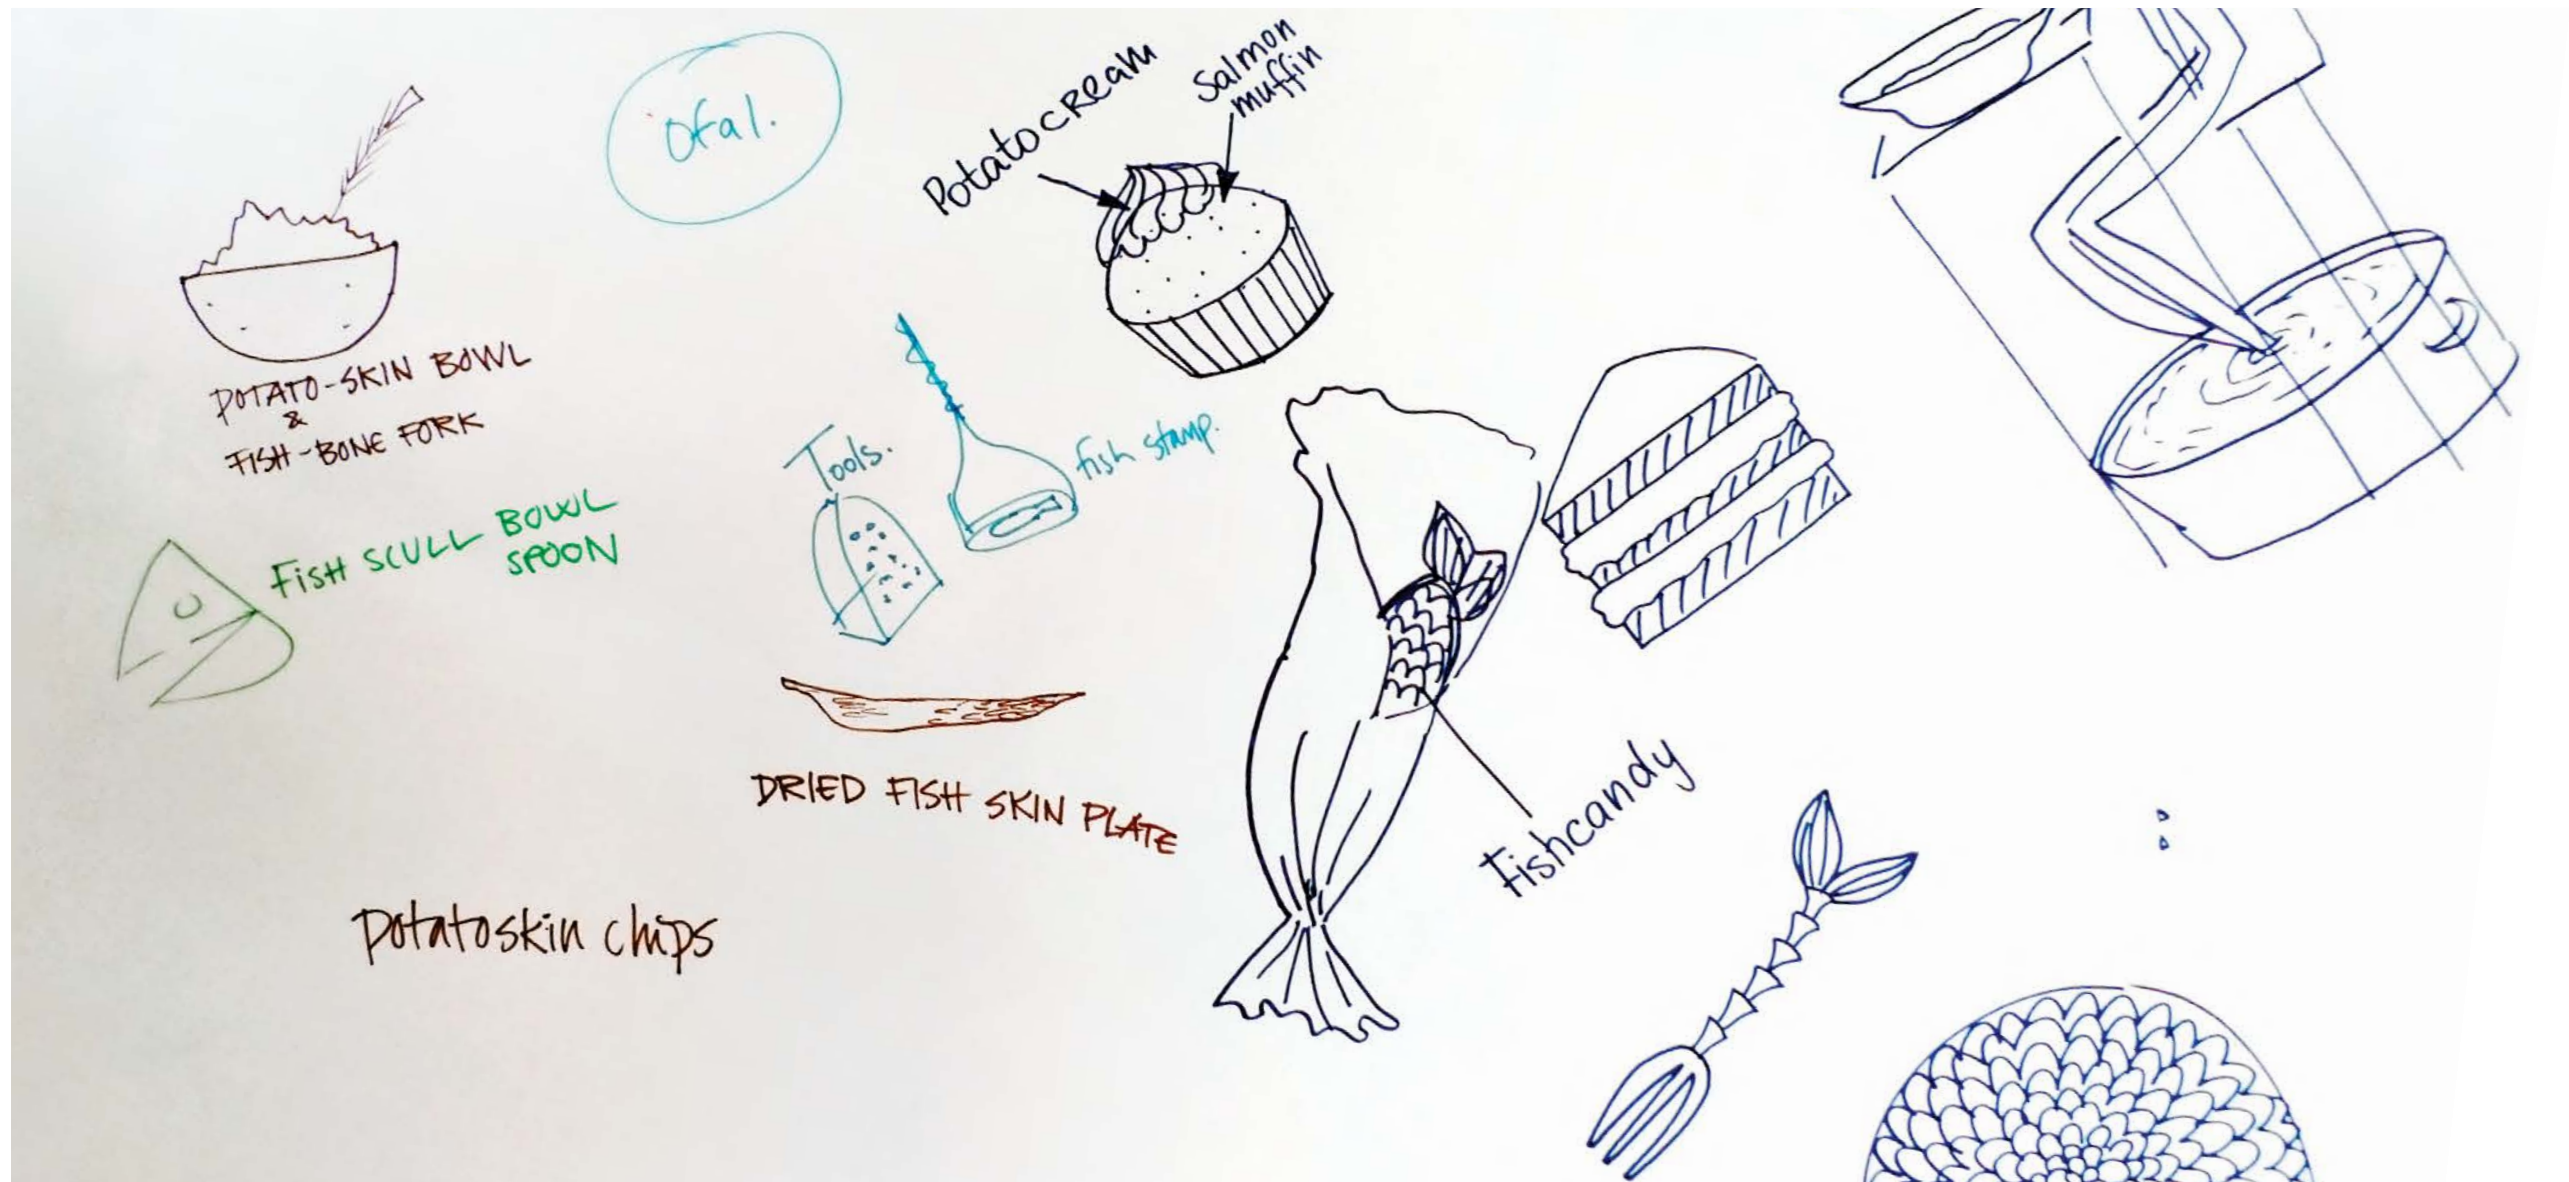 Ofal.
Potatocream
Salmon
muffin
POTATO-SKIN BOWL
&
FISH-BONE FORK
Tools.
fish stamp.
FISH SCULL BOWL
SPOON
DRIED FISH SKIN PLATE
Fishcandy
Potatoskin chips